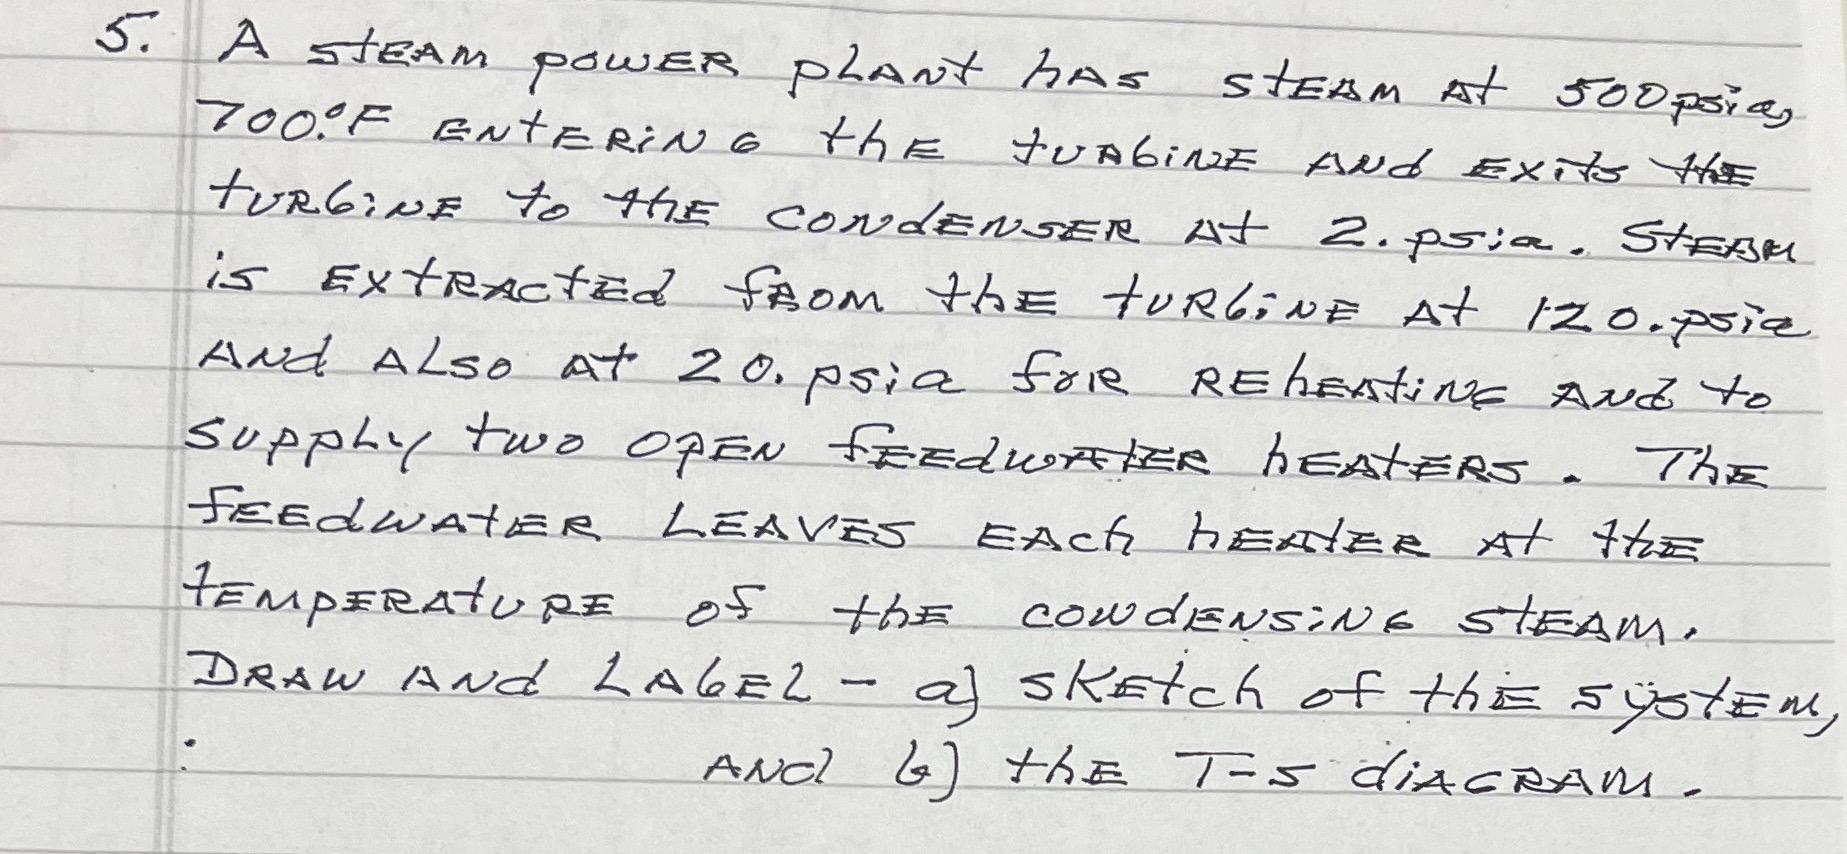 5. A STEAM POWER PLANT HAS STEAM AT 500 psia,
700.°F ENTERING THE TURBINE AND EXITS THE
TURBINE TO THE CONDENSER AT 2. psia. STEAM
IS EXTRACTED FROM THE TURBINE AT 120. psia
AND ALSO AT 20. psia FOR REHEATING AND TO
SUPPLY TWO OPEN FEEDWATER HEATERS. THE
FEEDWATER LEAVES EACH HEATER AT THE
TEMPERATURE OF THE CONDENSING STEAM.
DRAW AND LABEL - a) SKETCH OF THE SYSTEM,
: AND b) THE T-S DIAGRAM.